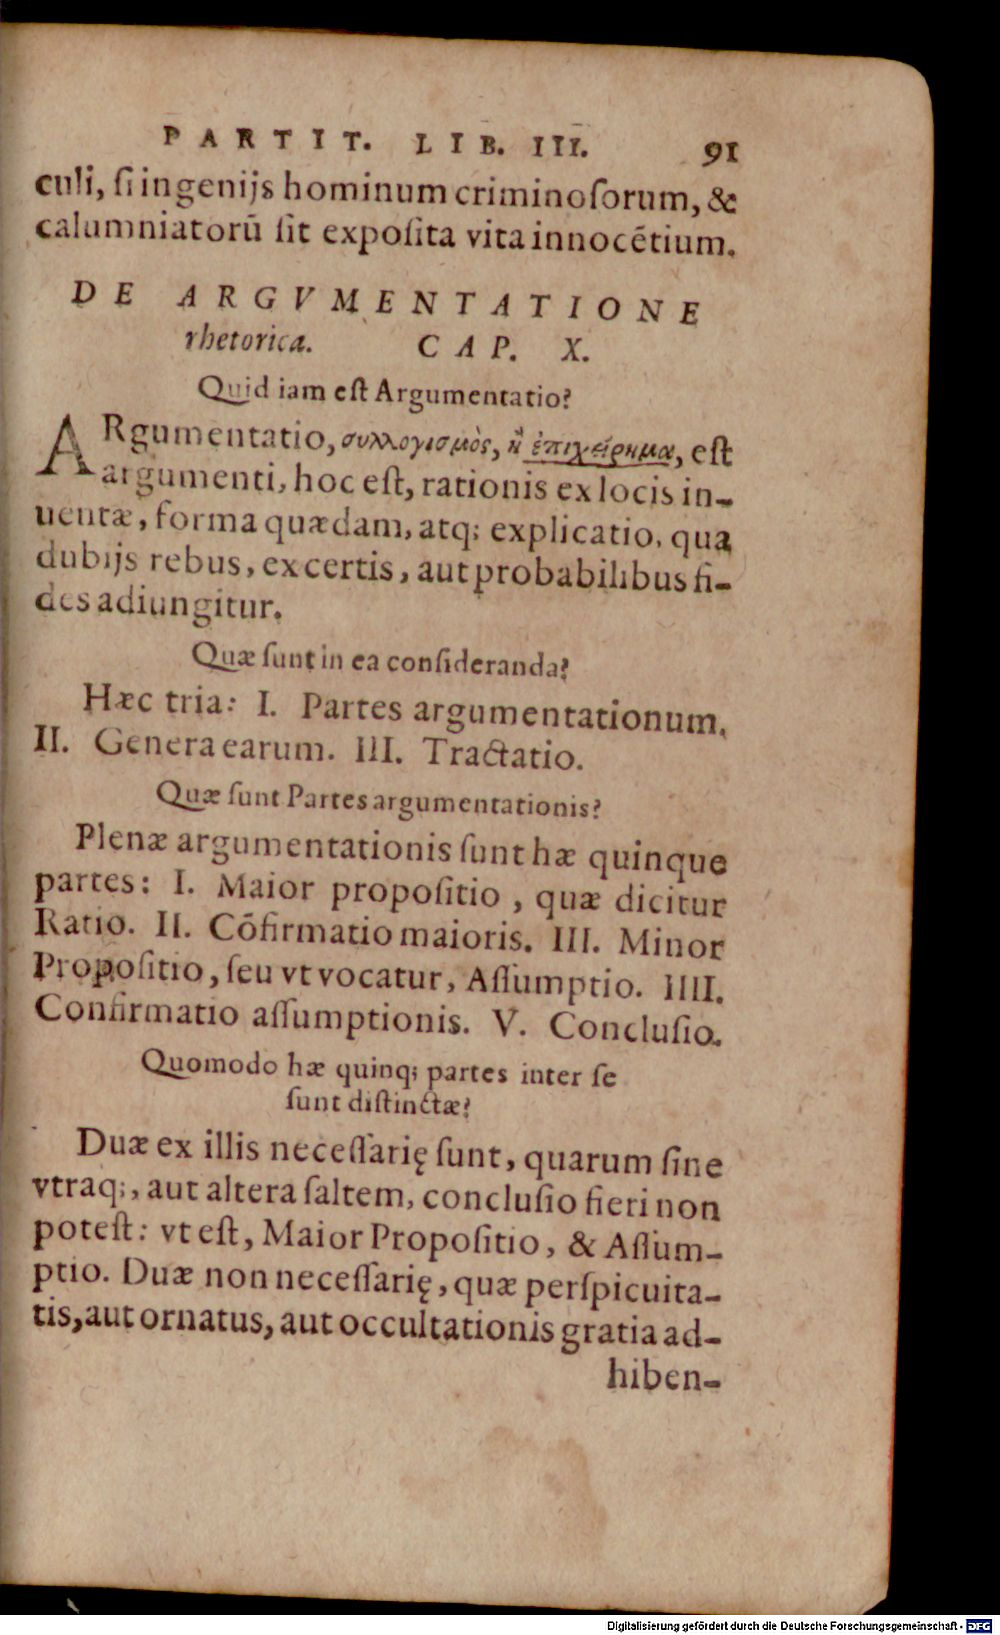 PARTIT. LIB. III. 91
culi, ſi ingenijs hominum criminoſorum, &
calumniatorū ſit expoſita vita innocētium.
DE ARGVMENTATIONE
rhetorica. CAP. X.
Quid iam eſt Argumentatio?
ARgumentatio, συλλογισμὸς, ἢ ἐπιχείρημα, eſt
argumenti, hoc eſt, rationis ex locis in-
uentæ, forma quædam, atq; explicatio, qua
dubijs rebus, ex certis, aut probabilibus fi-
des adiungitur.
Quæ ſunt in ea conſideranda?
Hæc tria: I. Partes argumentationum.
II. Genera earum. III. Tractatio.
Quæ ſunt Partes argumentationis?
Plenæ argumentationis ſunt hæ quinque
partes: I. Maior propoſitio, quæ dicitur
Ratio. II. Cōfirmatio maioris. III. Minor
Propoſitio, ſeu vt vocatur, Aſſumptio. IIII.
Confirmatio aſſumptionis. V. Concluſio.
Quomodo hæ quinq; partes inter ſe
ſunt diſtinctæ?
Duæ ex illis neceſſarię ſunt, quarum ſine
vtraq;, aut altera ſaltem, concluſio fieri non
poteſt: vt eſt, Maior Propoſitio, & Aſſum-
ptio. Duæ non neceſſarię, quæ perſpicuita-
tis, aut ornatus, aut occultationis gratia ad-
hiben-
Digitalisierung gefördert durch die Deutsche Forschungsgemeinschaft - DFG